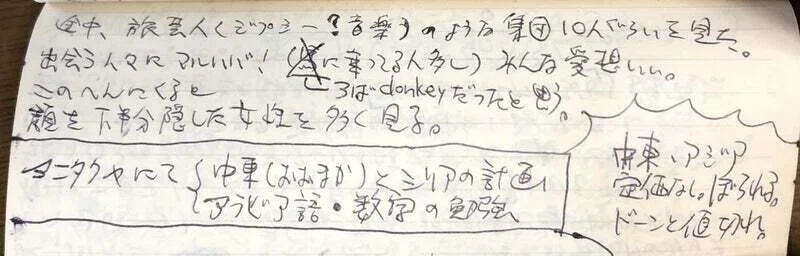 途中、旅芸人(ジプシー?音楽)のような集団10人ぐらいを見た。
出会う人々にマルハバ!(馬に乗ってる人多し)みんな愛想いい。
ろばdonkeyだったと思う。
このへんにくると
顔を下半分隠した女性を多く見る。
マニタクヤにて
中東(おおまか)とシリアの計画
アラビア語・数字の勉強
中東、アジア
定価なし。ぼられる。
ドーンと値切れ。